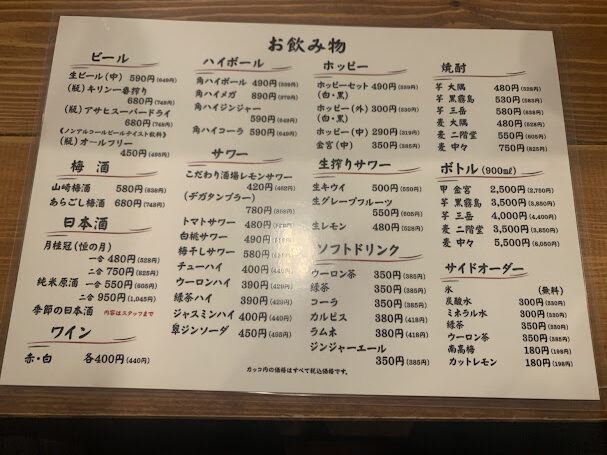 お飲み物
ビール
生ビール(中) 590円(649円)
(瓶)キリン一番搾り
680円(748円)
(瓶)アサヒスーパードライ
680円(748円)
《ノンアルコールビールテイスト飲料》
(瓶)オールフリー
450円(495円)
梅酒
山崎梅酒 580円(638円)
あらごし梅酒 680円(748円)
日本酒
月桂冠(恒の月)
一合 480円(528円)
二合 750円(825円)
純米原酒 一合 550円(605円)
二合 950円(1,045円)
季節の日本酒 内容はスタッフまで
ワイン
赤・白 各400円(440円)
ハイボール
角ハイボール 490円(539円)
角ハイメガ 890円(979円)
角ハイジンジャー
590円(649円)
角ハイコーラ 590円(649円)
サワー
こだわり酒場レモンサワー
420円(462円)
(デガタンブラー)
780円(858円)
トマトサワー 480円
白桃サワー 490円
梅干しサワー 580円
チューハイ 400円
ウーロンハイ 390円(429円)
緑茶ハイ 390円(429円)
ジャスミンハイ 400円(440円)
皐ジンソーダ 450円(495円)
ホッピー
ホッピーセット 490円(539円)
(白・黒)
ホッピー(外) 300円(330円)
(白・黒)
ホッピー(中) 290円(319円)
金宮(中) 350円(385円)
生搾りサワー
生キウイ 500円(550円)
生グレープフルーツ
550円(605円)
生レモン 480円(528円)
ソフトドリンク
ウーロン茶 350円(385円)
緑茶 350円(385円)
コーラ 350円(385円)
カルピス 380円(418円)
ラムネ 380円(418円)
ジンジャーエール
350円(385円)
カッコ内の価格はすべて税込価格です。
焼酎
芋 大隅 480円(528円)
芋 黒霧島 530円(583円)
芋 三岳 580円(638円)
麦 大隅 480円(528円)
麦 二階堂 550円(605円)
麦 中々 750円(825円)
ボトル(900㎖)
甲 金宮 2,500円(2,750円)
芋 黒霧島 3,500円(3,850円)
芋 三岳 4,000円(4,400円)
麦 二階堂 3,500円(3,850円)
麦 中々 5,500円(6,050円)
サイドオーダー
氷 (無料)
炭酸水 300円(330円)
ミネラル水 300円(330円)
緑茶 350円(385円)
ウーロン茶 350円(385円)
南高梅 180円(198円)
カットレモン 180円(198円)